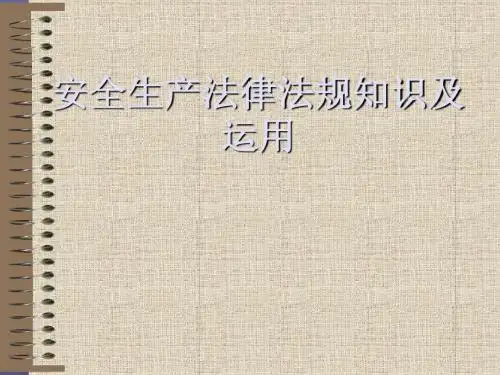 安全生产法律法规知识及
运用